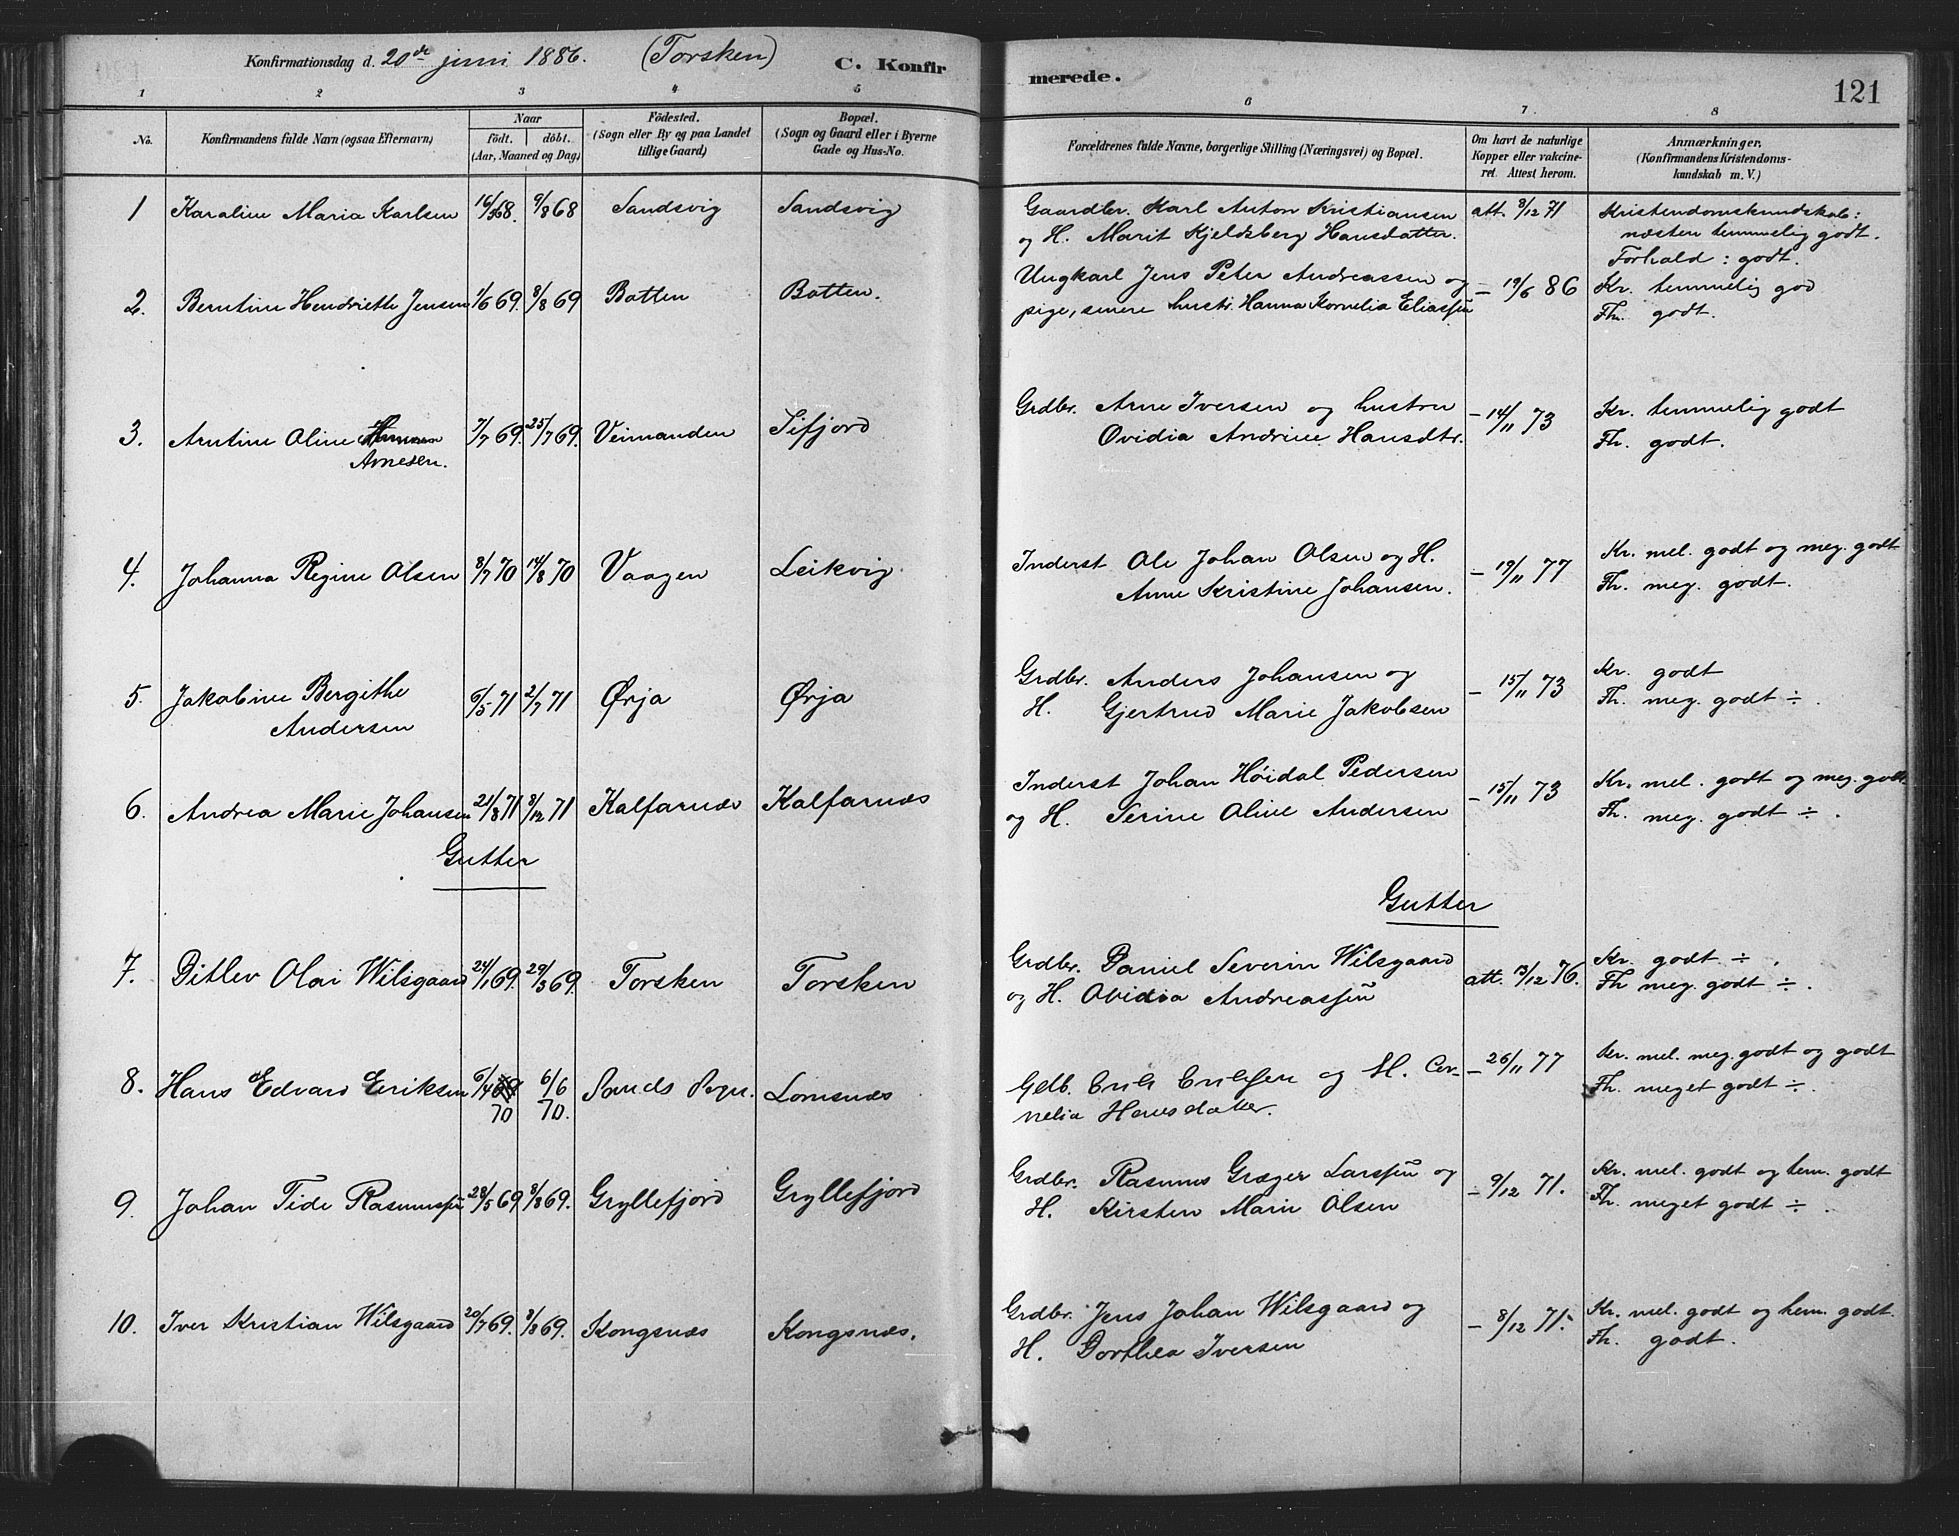 Konfirmationsdag d. 20de juni 1886. (Torsken) C. Konfir
merede. 121
1 2 3 4 5
6 7. 8
No.
Konfirmandens fulde Navn (ogsaa Efternavn)
Naar
födt. döbt.
(Aar, Maaned og Dag)
Födested.
(Sogn eller By og paa Landet
tillige Gaard)
Bopæl.
(Sogn og Gaard eller i Byerne
Gade og Hus-No.
Forældrenes fulde Navne, borgerlige Stilling (Næringsvei) og Bopæl.
Om havt de naturlige
Kopper eller vakcine-
ret. Attest herom.
Anmærkninger.
(Konfirmandens Kristendoms-
kundskab m. V.)
1 Karaline Maria Karlsen 68. 9/8 68 Sandsvig Sandsvig
Gaardbr. Karl Anton Kristiansen att. 8/12 71 Kristendomskundskab:
og H. Marit Kjeldsberg Hansdatter. næsten temmelig godt.
Forhold: godt.
2. Berntine Hendriette Jensen 1/6 69. 8/8 69 Botten Botten.
Ungkarl Jens Peter Andreassen og – 19/6 86 Kr. temmelig god
pige, senere hustr. Hanna Kornelia Eliassen Fh. godt.
3. Arntine Oline 7/7 69. 25/7 69. Veimanden Sifjord
Arnesen.
Grdbr. Arne Iversen og hustru – 14/11 73 Kr. temmelig godt
Ovidia Andrine Hansdtr. Fh. godt.
4. Johanna Regine Olsen 8/7 70 14/8 70 Vaagen Leikvig
Inderst Ole Johan Olsen og H. – 19/11 77 Kr. mel. godt og meg. godt
Anne Kristine Johansen. Fh. meg. godt.
5. Jakobine Bergithe 6/5 71 2/7 71 Ørja Ørja
Andersen
Grdbr. Anders Johansen og – 15/11 73 Kr. godt
H. Gjertrud Marie Jakobsen Fh. meg. godt ÷.
6. Andrea Marie Johansen 21/8 71 3/12 71 Kalfarnæs Kalfarnæs
Inderst Johan Höidal Pedersen – 15/11 73 Kr. mel. godt og meg. godt
og H. Serine Oline Andersen Fh. meg. godt ÷.
Gutter
Gutter
7. Ditlev Olai Wilsgaard 24/1 69. 29/3 69. Torsken Torsken
Grdbr. Daniel Severin Wilsgaard att. 13/12 76. Kr. godt ÷.
og H. Ovidia Andreassen Fh meg. godt ÷.
8. Hans Edvard Eriksen 6/4 69 6/6 Sands Sogn. Lomsnæs
70 70.
Gdb. Erik Eriksen og H. Cor- – 26/11 77 Kr. mel. meg. godt og godt
nelia Hansdatter. Fh. meget godt ÷.
9. Johan Tide Rasmussen 28/5 69 8/8 69. Gryllefjord Gryllefjord
Grdbr. Rasmus Græger Larssen og – 9/12 71. Kr. mel. godt og tem. godt
H. Kirsten Marie Olsen Fh. meget godt ÷.
10. Iver Kristian Wilsgaard 20/7 69. 8/8 69. Kongsnæs Kongsnæs.
Grdbr. Jens Johan Wilsgaard og – 8/12 71. Kr. mel. godt og tem. godt.
H. Dorthea Iversen Fh. godt.